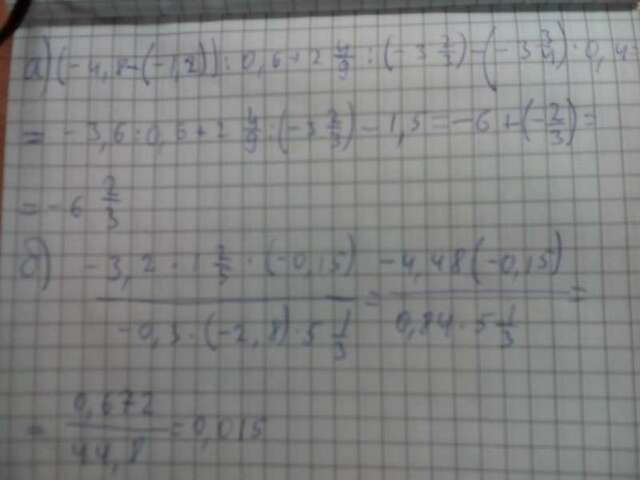 а) (-4,8-(-1,2)):0,6+2 4/9:(-3 2/3)-(-3 3/4)·0,4
= -3,6:0,6+2 4/9:(-3 2/3)-1,5=-6+(-2/3)=
= -6 2/3
б) -3,2·1 2/5·(-0,15) / -0,3·(-2,8)·5 1/3 = -4,48(-0,15) / 0,84·5 1/3 =
= 0,672 / 44,8 = 0,015